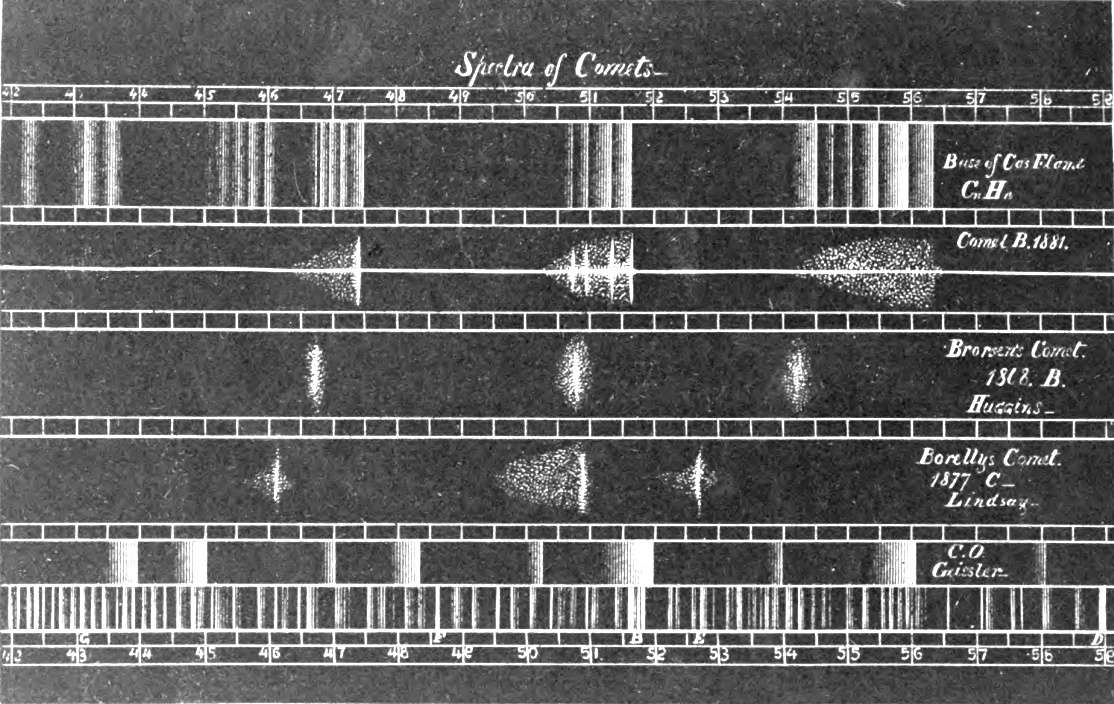 Spectra of Comets
42 43 44 45 46 47 48 49 50 51 52 53 54 55 56 57 58 59
Base of Gas Flame
Cn Hn
Comet B. 1881.
Brorsen's Comet.
1868. B.
Huggins
Borellys Comet.
1877 C
Lindsay
C.O.
Geissler
G F B E D
42 43 44 45 46 47 48 49 50 51 52 53 54 55 56 57 58 59